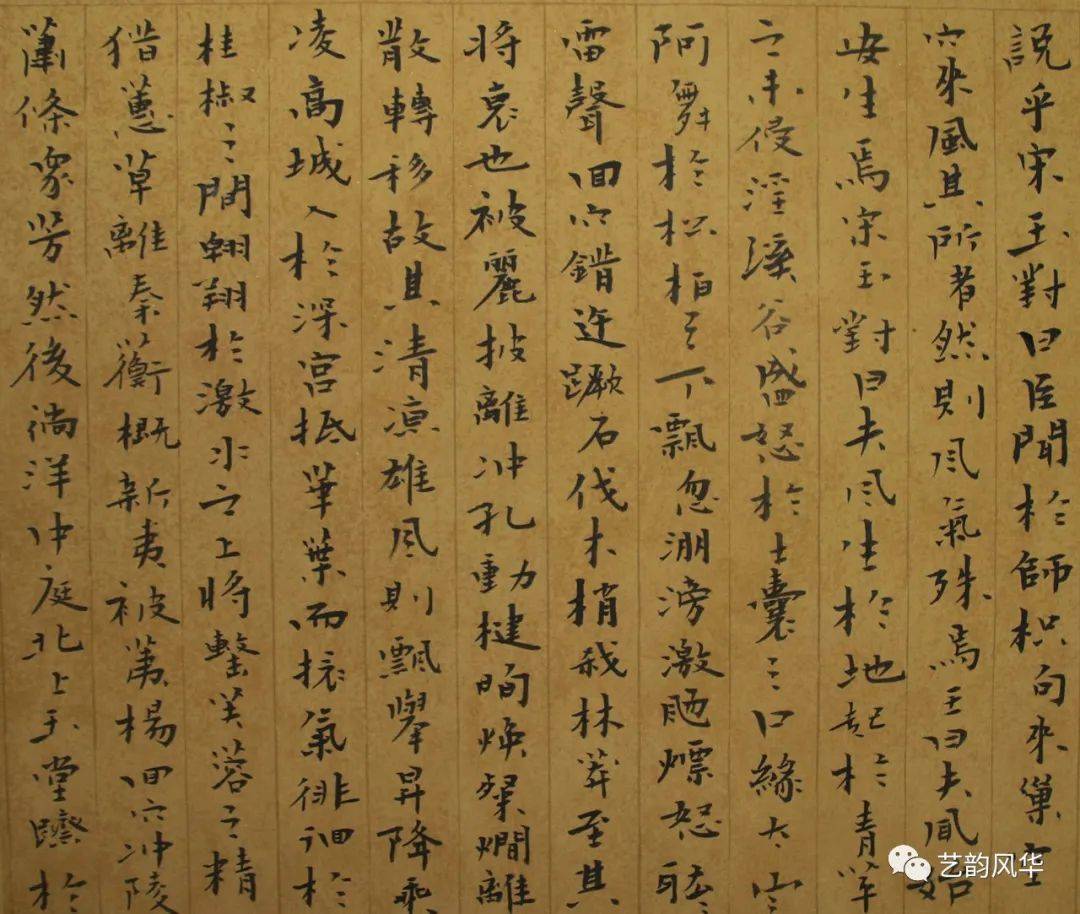 說乎宋玉對曰臣聞於師枳句來巢空
穴來風其所者然則风氣殊焉王曰夫風始
安生焉宋玉對曰夫风生於地起於青苹
之末侵淫溪谷盛怒於土囊之口緣太山
阿舞於松柏之下飄忽淜滂激飏熛怒耾=
雷聲回穴錯迕蹶石伐木梢殺林莽至其
將衰也被麗披離冲孔動楗眴煥粲爛離
散轉移故其清凉雄风則飄舉昇降乘
凌高城入於深宫抵華葉而振氣徘徊於
桂椒之間翱翔於激水之上將擊芙蓉之精
猎蕙草離秦蘅概新夷被荑楊回穴冲陵
蕭條衆芳然後徜洋中庭北上玉堂躋於
艺韵风华